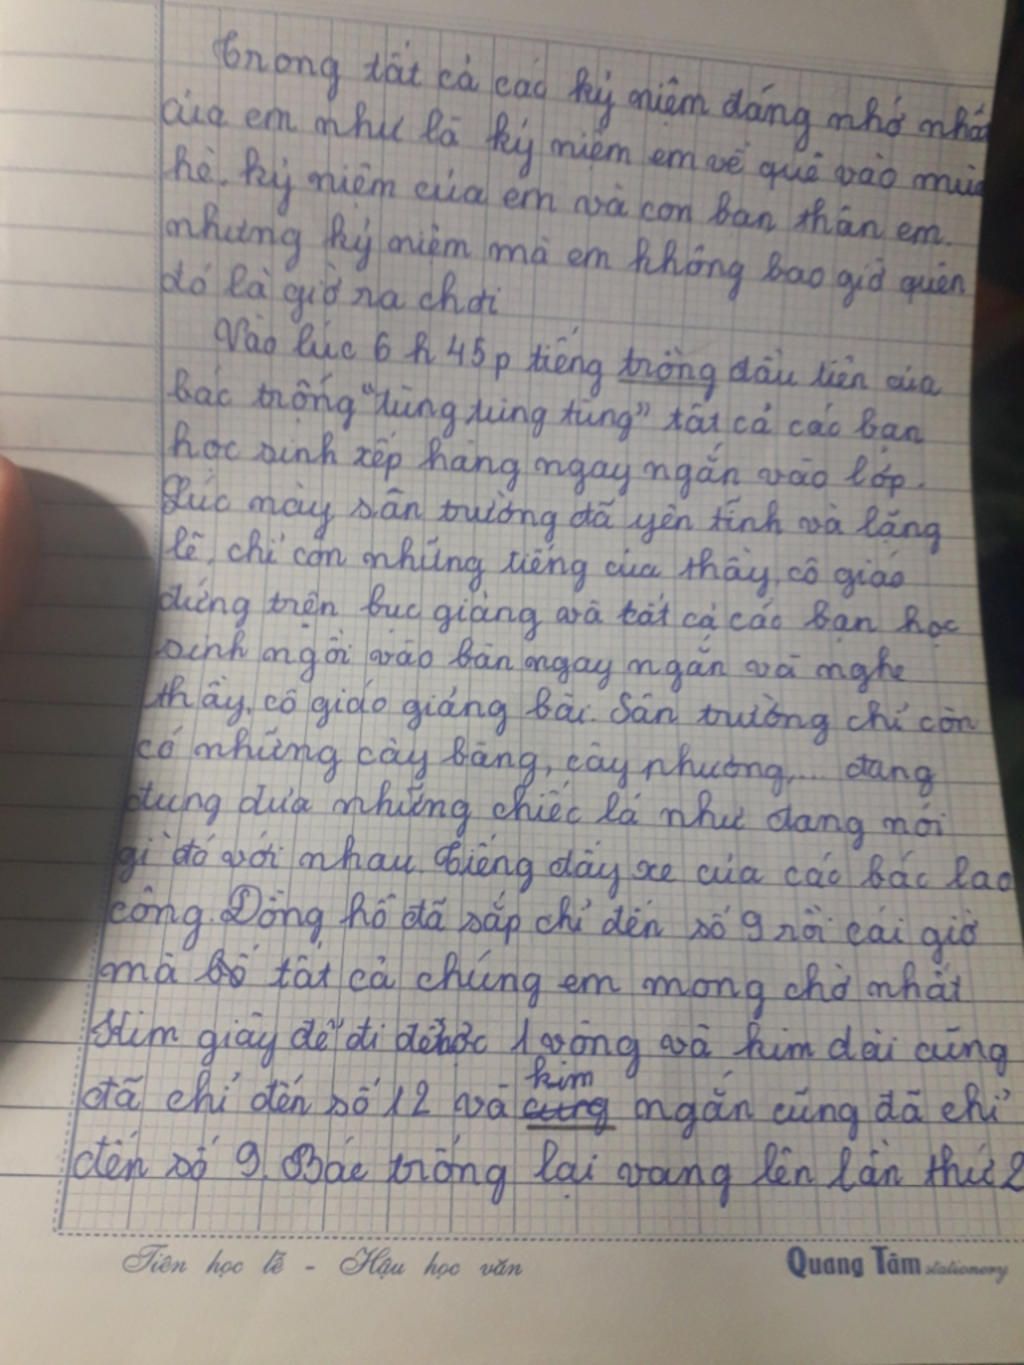 Trong tất cả các kỷ niệm đáng nhớ nhất
của em như là kỷ niệm em về quê vào mùa
hè, kỷ niệm của em và con bạn thân em.
nhưng kỷ niệm mà em không bao giờ quên
đó là giờ ra chơi
Vào lúc 6h45p tiếng trống đầu tiên của
bác trống "tùng tùng tùng" tất cả các bạn
học sinh xếp hàng ngay ngắn vào lớp.
Lúc này sân trường đã yên tĩnh và lặng
lẽ, chỉ còn những tiếng của thầy, cô giáo
đứng trên bục giảng và tất cả các bạn học
sinh ngồi vào bàn ngay ngắn và nghe
thầy, cô giáo giảng bài. Sân trường chỉ còn
có những cây bàng, cây phượng,... đang
đung đưa những chiếc lá như đang nói
gì đó với nhau. Tiếng đẩy xe của các bác lao
công. Đồng hồ đã sắp chỉ đến số 9 rồi cái giờ
mà tất cả chúng em mong chờ nhất
Kim giây để đi được 1 vòng và kim dài cũng
đã chỉ đến số 12 và kim ngắn cũng đã chỉ
đến số 9. Bác trống lại vang lên lần thứ 2
Tiên học lễ - Hậu học văn
Quang Tâm stationery